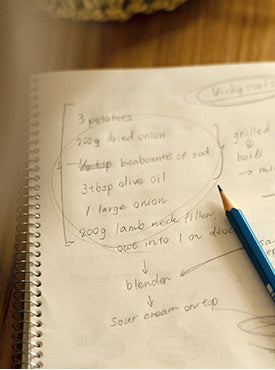 3 potatoes
200g dried onion
1/2 tsp bicaboante of sod
3 tbsp olive oil
1 large onion
200g lamb neck fillen,
out into 1 or
grilled
&
boil
blender
sour cream on top